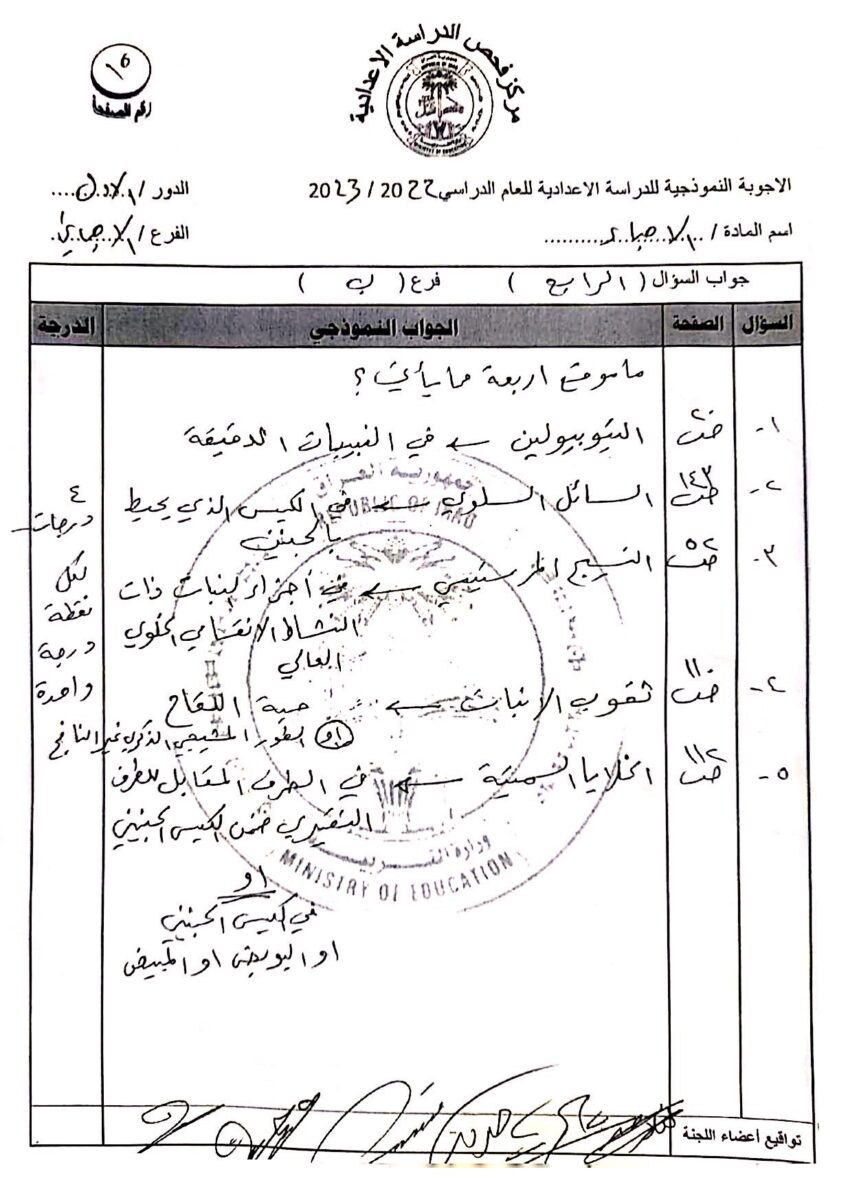 مركز فحص الدراسة الاعدادية
١٥
رقم الصفحة
الاجوبة النموذجية للدراسة الاعدادية للعام الدراسي 2022 / 2023
الدور / الاول
اسم المادة / الاحياء
الفرع / الاحيائي
جواب السؤال ( الرابع ) فرع ( ب )
السؤال الصفحة الجواب النموذجي الدرجة
ما موقع اربعة مما يأتي ؟
١- ص٢٠ التيوبيولين ← في النبيبات الدقيقة
٢- ص١٤٣ السائل السلوي ← في الكيس الذي يحيط
بالجنين
٣- ص٥٢ النسيج المرستيمي ← في أجزاء النبات ذات
النشاط الانقسامي الخلوي
العالي
٤- ص١١٠ ثقوب الانبات ← حبة اللقاح
او الطور المشيجي الذكري غير الناضج
٥- ص١١٢ الخلايا السمتية ← في الطرف المقابل للطرف
النقيري ضمن الكيس الجنيني
او
في الكيس الجنيني
او البويض او المبيض
٤ درجات
لكل
نقطة
درجة
واحدة
جمهورية العراق
REPUBLIC OF IRAQ
وزارة التربية
MINISTRY OF EDUCATION
تواقيع أعضاء اللجنة